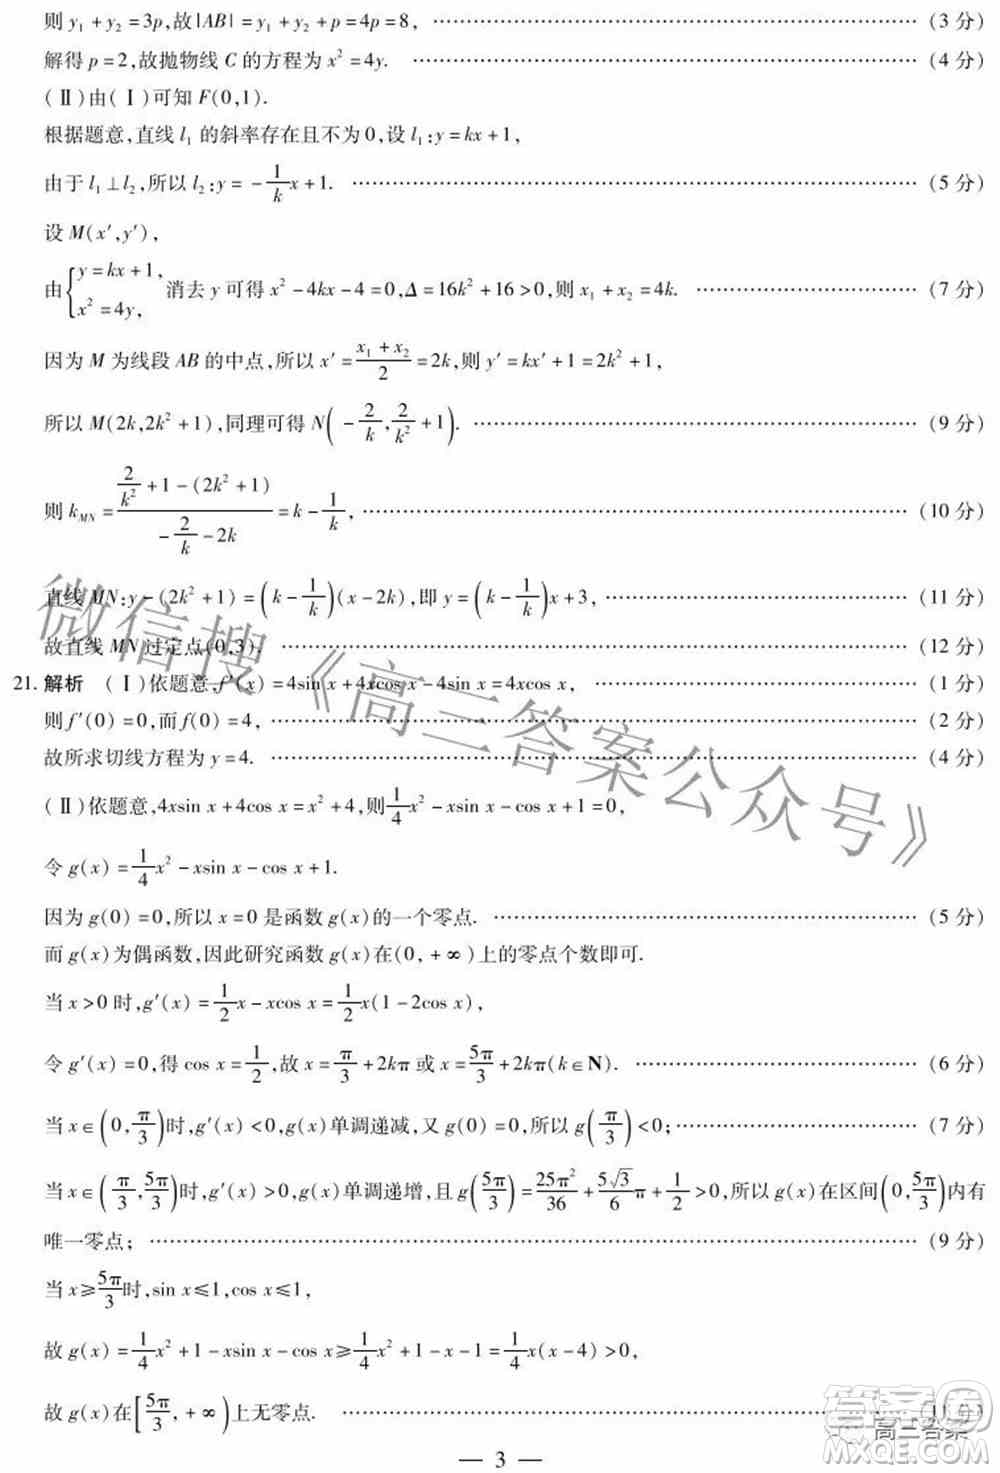 则 y₁+y₂=3p,故|AB|=y₁+y₂+p=4p=8, ……………………(3 分)
解得 p=2,故抛物线 C 的方程为 x²=4y. ……………………(4 分)
(Ⅱ)由(Ⅰ)可知 F(0,1).
根据题意,直线 l₁ 的斜率存在且不为 0,设 l₁:y=kx+1,
由于 l₁⊥l₂,所以 l₂:y=-1/k x+1. ……………………(5 分)
设 M(x′,y′),
由{y=kx+1, x²=4y, 消去 y 可得 x²-4kx-4=0,Δ=16k²+16>0,则 x₁+x₂=4k. ……………………(7 分)
因为 M 为线段 AB 的中点,所以 x′=(x₁+x₂)/2=2k,则 y′=kx′+1=2k²+1,
所以 M(2k,2k²+1),同理可得 N(-2/k,2/k²+1). ……………………(9 分)
则 k_MN=(2/k²+1-(2k²+1))/(-2/k-2k)=k-1/k, ……………………(10 分)
直线 MN:y-(2k²+1)=(k-1/k)(x-2k),即 y=(k-1/k)x+3, ……………………(11 分)
故直线 MN 过定点(0,3). ……………………(12 分)
21. 解析 (Ⅰ)依题意,f′(x)=4sin x+4xcos x-4sin x=4xcos x, ……………………(1 分)
则 f′(0)=0,而 f(0)=4, ……………………(2 分)
故所求切线方程为 y=4. ……………………(4 分)
(Ⅱ)依题意,4xsin x+4cos x=x²+4,则1/4x²-xsin x-cos x+1=0,
令 g(x)=1/4x²-xsin x-cos x+1.
因为 g(0)=0,所以 x=0 是函数 g(x)的一个零点. ……………………(5 分)
而 g(x)为偶函数,因此研究函数 g(x)在(0,+∞)上的零点个数即可.
当 x>0 时,g′(x)=1/2x-xcos x=1/2x(1-2cos x),
令 g′(x)=0,得 cos x=1/2,故 x=π/3+2kπ 或 x=5π/3+2kπ(k∈N). ……………………(6 分)
当 x∈(0,π/3)时,g′(x)<0,g(x)单调递减,又 g(0)=0,所以 g(π/3)<0; ……………………(7 分)
当 x∈(π/3,5π/3)时,g′(x)>0,g(x)单调递增,且 g(5π/3)=25π²/36+5√3/6π+1/2>0,所以 g(x)在区间(0,5π/3)内有
唯一零点; ……………………(9 分)
当 x≥5π/3时,sin x≤1,cos x≤1,
故 g(x)=1/4x²+1-xsin x-cos x≥1/4x²+1-x-1=1/4x(x-4)>0,
故 g(x)在[5π/3,+∞)上无零点. ……………………
— 3 —
微信搜《高三答案公众号》
高三答案
答案圈
MXQE.COM